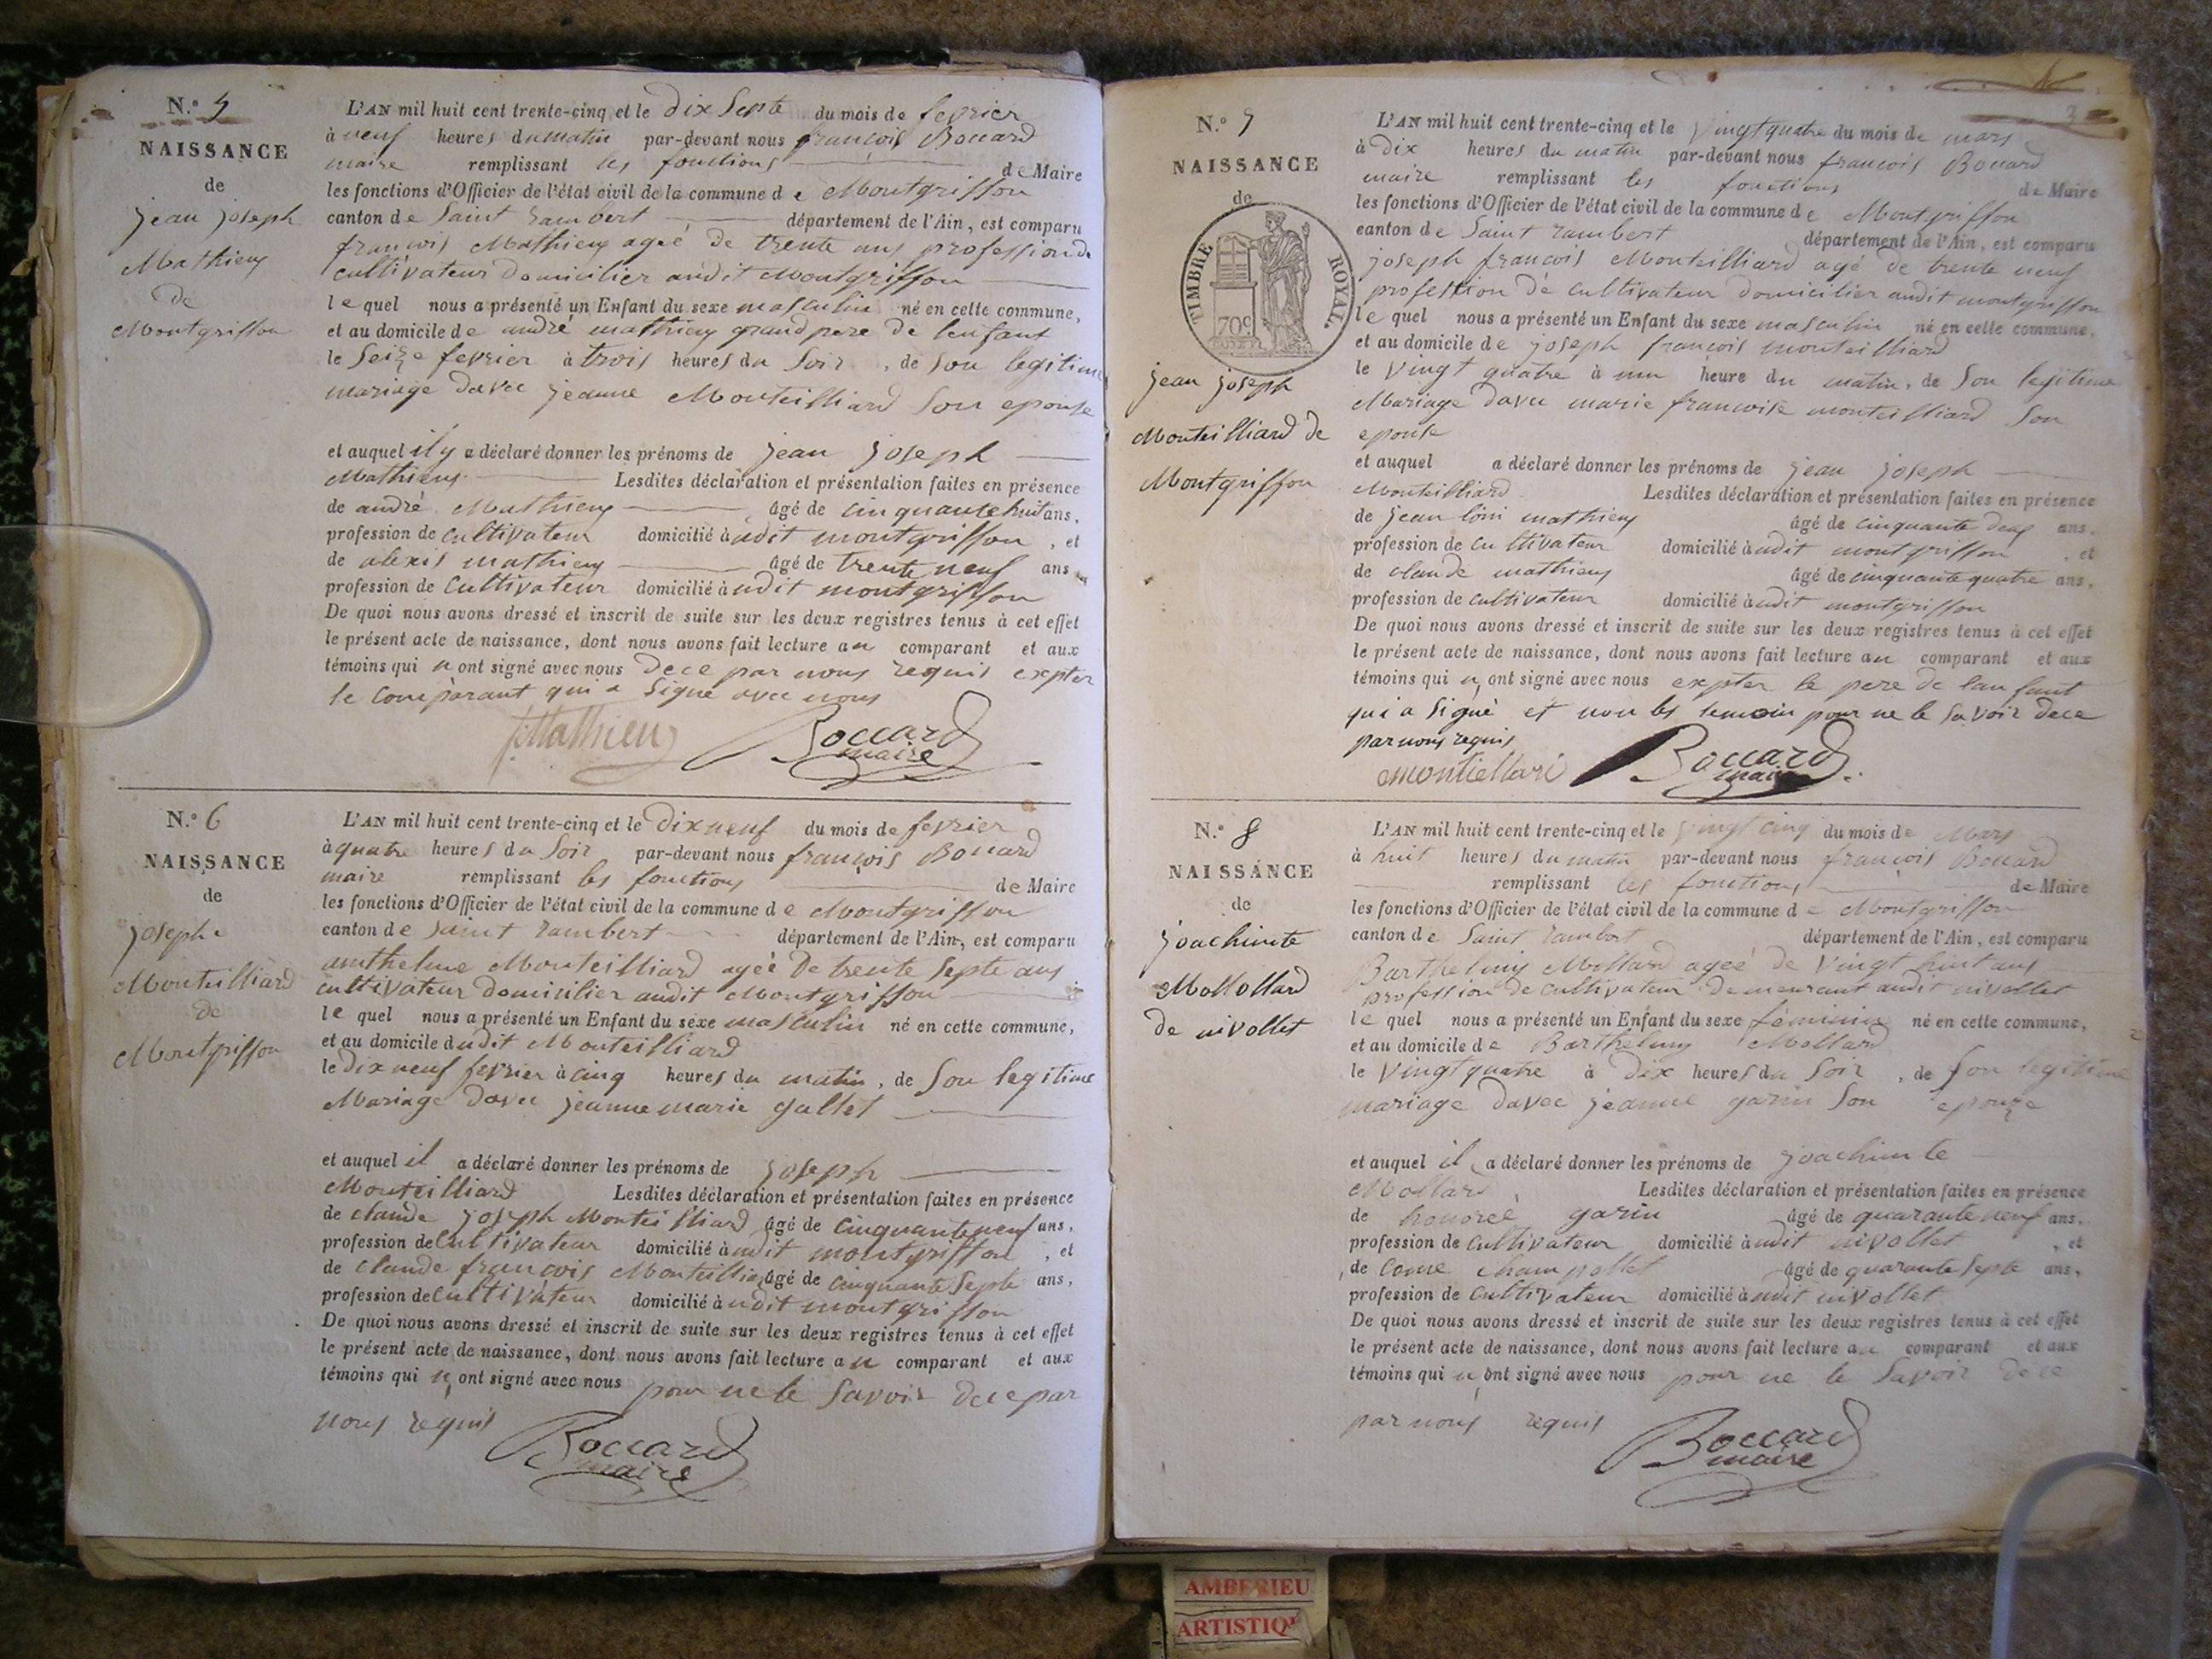 N.° 5
NAISSANCE
de
jean joseph
Mathieu
de
Montgriffon
L'AN mil huit cent trente-cinq et le dix septe du mois de fevrier
à neuf heures du matin par-devant nous françois Boccard
maire remplissant les fonctions de Maire
les fonctions d'Officier de l'état civil de la commune de Montgriffon
canton de Saint rambert département de l'Ain, est comparu
francois Mathieu ageé de trente ans profession de
cultivateur domicilier audit Montgriffon
lequel nous a présenté un Enfant du sexe masculin né en cette commune,
et au domicile de andré mathieu grand pere de lenfant
le Seize fevrier à trois heures du Soir, de son legitime
mariage davec jeanne Monteilliard Son epouse
et auquel il y a déclaré donner les prénoms de jean joseph
Mathieu Lesdites déclaration et présentation faites en présence
de andré Mathieu âgé de cinquante huit ans,
profession de cultivateur domicilié audit montgriffon, et
de alexis mathieu âgé de trente neuf ans
profession de cultivateur domicilié audit montgriffon
De quoi nous avons dressé et inscrit de suite sur les deux registres tenus à cet effet
le présent acte de naissance, dont nous avons fait lecture au comparant et aux
témoins qui n ont signé avec nous dece par nous requis expter
le comparant qui a Signé avec nous
f. Mathieu Boccard
maire
N.° 6
NAISSANCE
de
joseph
Monteilliard
de
Montgriffon
L'AN mil huit cent trente-cinq et le dix neuf du mois de fevrier
à quatre heures du Soir par-devant nous françois Boccard
maire remplissant les fonctions de Maire
les fonctions d'Officier de l'état civil de la commune de Montgriffon
canton de Saint rambert département de l'Ain, est comparu
anthelme Monteilliard ageé de trente Septe ans
cultivateur domicilier audit Montgriffon
lequel nous a présenté un Enfant du sexe masculin né en cette commune,
et au domicile dudit Monteilliard
le dix neuf fevrier à cinq heures du matin, de Son legitime
Mariage davec jeanne marie gallet
et auquel il a déclaré donner les prénoms de joseph
Monteilliard Lesdites déclaration et présentation faites en présence
de claude joseph Monteilliard âgé de cinquante neuf ans,
profession de cultivateur domicilié audit montgriffon, et
de claude francois Monteilliard âgé de cinquante Septe ans,
profession de cultivateur domicilié audit montgriffon
De quoi nous avons dressé et inscrit de suite sur les deux registres tenus à cet effet
le présent acte de naissance, dont nous avons fait lecture au comparant et aux
témoins qui n ont signé avec nous pour ne le Savoir dece par
nous requis
Boccard
maire
3
N.° 7
NAISSANCE
de
TIMBRE ROYAL.
70c
jean joseph
Monteilliard de
Montgriffon
L'AN mil huit cent trente-cinq et le vingt quatre du mois de mars
à dix heures du matin par-devant nous francois Boccard
maire remplissant les fonctions de Maire
les fonctions d'Officier de l'état civil de la commune de Montgriffon
canton de Saint rambert département de l'Ain, est comparu
joseph francois Monteilliard agé de trente neuf
profession de cultivateur domicilier audit montgriffon
lequel nous a présenté un Enfant du sexe masculin né en cette commune,
et au domicile de joseph francois monteilliard
le vingt quatre à une heure du matin, de Son legitime
Mariage davec marie francoise monteilliard Son
epouse
et auquel a déclaré donner les prénoms de jean joseph
Monteilliard Lesdites déclaration et présentation faites en présence
de jean loui mathieu âgé de cinquante deux ans,
profession de cultivateur domicilié audit montgriffon, et
de claude mathieu âgé de cinquante quatre ans,
profession de cultivateur domicilié audit montgriffon
De quoi nous avons dressé et inscrit de suite sur les deux registres tenus à cet effet
le présent acte de naissance, dont nous avons fait lecture au comparant et aux
témoins qui n ont signé avec nous expter le pere de lanfant
qui a Signé et non les temoin pour ne le Savoir dece
par nous requis
Boccard
maire
N.° 8
NAISSANCE
de
joachimte
Mollollard
de nivollet
L'AN mil huit cent trente-cinq et le vingt cinq du mois de Mars
à huit heures du matin par-devant nous françois Boccard
remplissant les fonctions de Maire
les fonctions d'Officier de l'état civil de la commune de Montgriffon
canton de Saint rambert département de l'Ain, est comparu
Barthelmy Mollard ageé de vingt huit ans
profession de cultivateur demeurant audit nivollet
lequel nous a présenté un Enfant du sexe féminin né en cette commune,
et au domicile de Barthelmy Mollard
le vingt quatre à dix heures du Soir, de Son legitime
mariage davec jeanne garin Son epouze
et auquel il a déclaré donner les prénoms de joachimte
Mollard Lesdites déclaration et présentation faites en présence
de honoreé garin âgé de quarante neuf ans,
profession de cultivateur domicilié audit nivollet, et
de Come champollet âgé de quarante Septe ans,
profession de cultivateur domicilié audit nivollet
De quoi nous avons dressé et inscrit de suite sur les deux registres tenus à cet effet
le présent acte de naissance, dont nous avons fait lecture au comparant et aux
témoins qui n ont signé avec nous pour ne le Savoir dece
par nous requis
Boccard
maire
AMBERIEU
ARTISTIQU